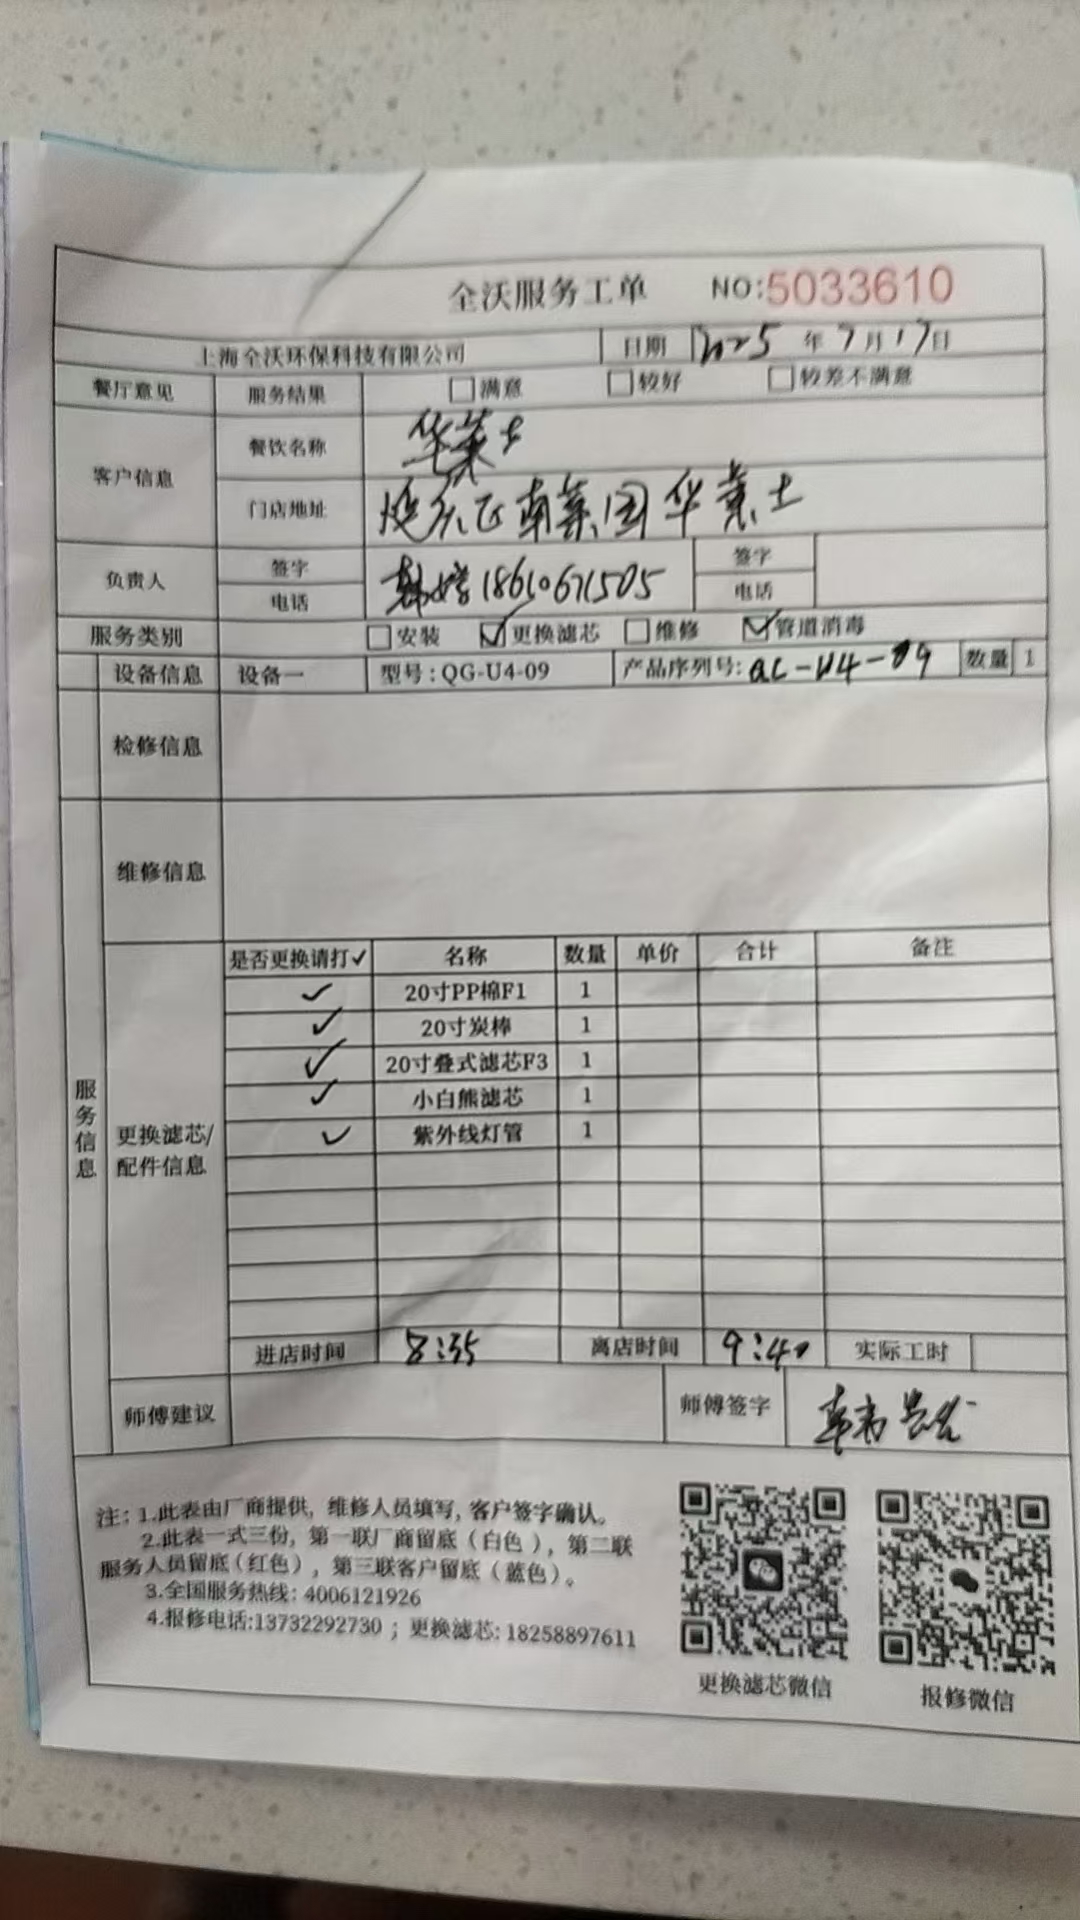 全沃服务工单 NO:5033610
上海全沃环保科技有限公司 日期 2025 年 7 月 17 日
餐厅意见 服务结果 满意 较好 较差不满意
客户信息 餐饮名称 华莱士
门店地址 延庆区南菜园华莱士
负责人 签字 电话 18610671505 签字 电话
服务类别 安装 ✓更换滤芯 维修 ✓管道消毒
设备信息 设备一 型号：QG-U4-09 产品序列号: QG-U4-09 数量 1
检修信息
维修信息
服务信息
更换滤芯/配件信息
是否更换请打✓ 名称 数量 单价 合计 备注
✓ 20寸PP棉F1 1
✓ 20寸炭棒 1
✓ 20寸叠式滤芯F3 1
✓ 小白熊滤芯 1
✓ 紫外线灯管 1
进店时间 8:35 离店时间 9:40 实际工时
师傅建议 师傅签字
注：1.此表由厂商提供，维修人员填写，客户签字确认。
2.此表一式三份，第一联厂商留底（白色），第二联
服务人员留底（红色），第三联客户留底（蓝色）。
3.全国服务热线：4006121926
4.报修电话:13732292730 ；更换滤芯: 18258897611
更换滤芯微信 报修微信